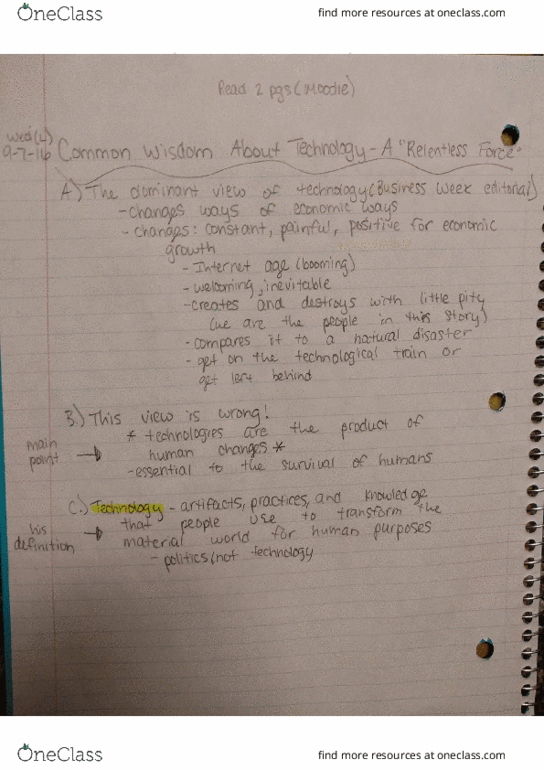 OneClass
find more resources at oneclass.com
Read 2 pgs (Moodle)
Wed(L)
9-7-16 Common Wisdom About Technology - A "Relentless Force"
A.) The dominant view of technology (Business Week editorial)
- changes ways of economic ways
- changes: constant, painful, positive for economic
growth
- Internet age (booming)
- welcoming, inevitable
- creates and destroys with little pity
(we are the people in this story)
- compares it to a natural disaster
- get on the technological train or
get left behind
B.) This view is wrong!
main point → * technologies are the product of
human changes *
- essential to the survival of humans
C.) Technology - artifacts, practices, and knowledge
his definition → that people use to transform the
material world for human purposes
- politics (not technology
OneClass
find more resources at oneclass.com